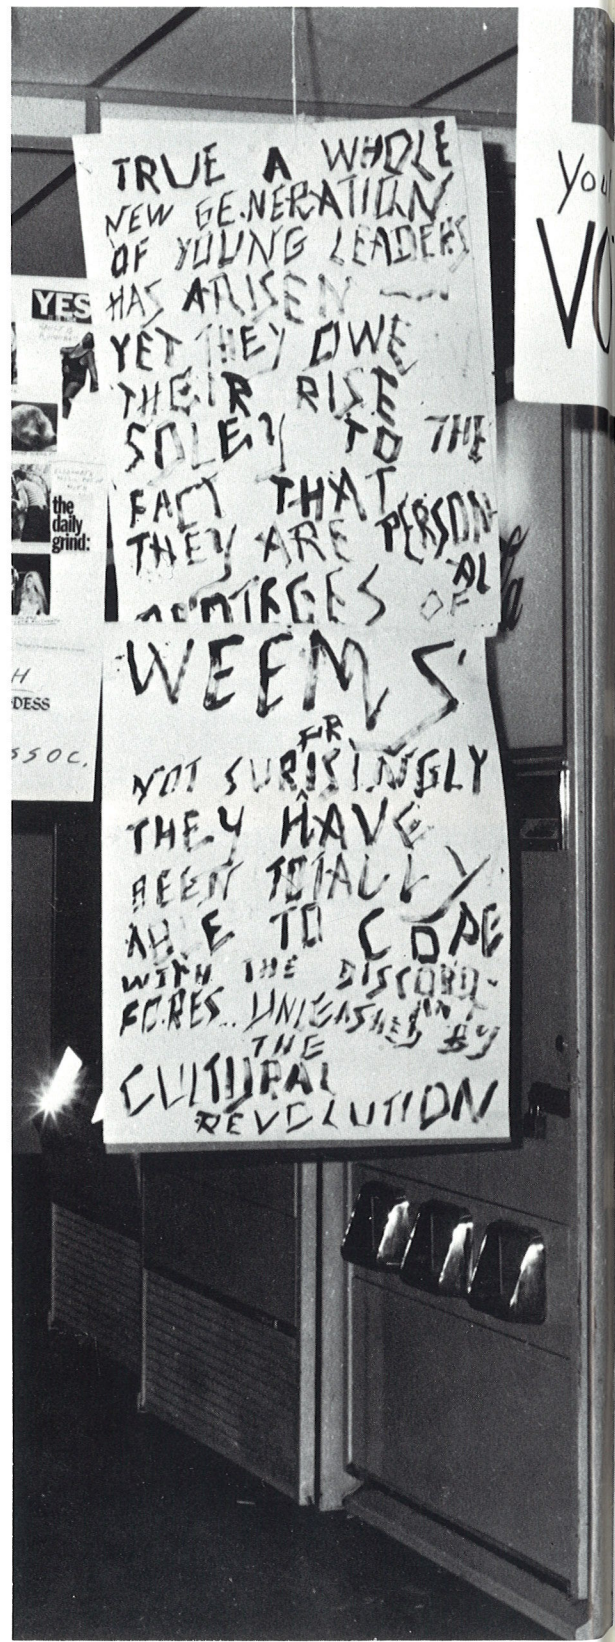 TRUE A WHOLE
NEW GENERATION
OF YOUNG LEADERS
HAS ARISEN —
YET THEY OWE
THEIR RISE
SOLELY TO THE
FACT THAT
THEY ARE PERSON-
AL
OF
WEEMS'
PR
NOT SURISINGLY
THEY HAVE
BEEN TOTALLY
ABLE TO COPE
WITH THE DISCORD-
ANT
FORES.. UNLEASHED BY
THE
CULTURAL
REVOLUTION
YES
the
daily
grind:
H
DESS
SSOC.
You
VO